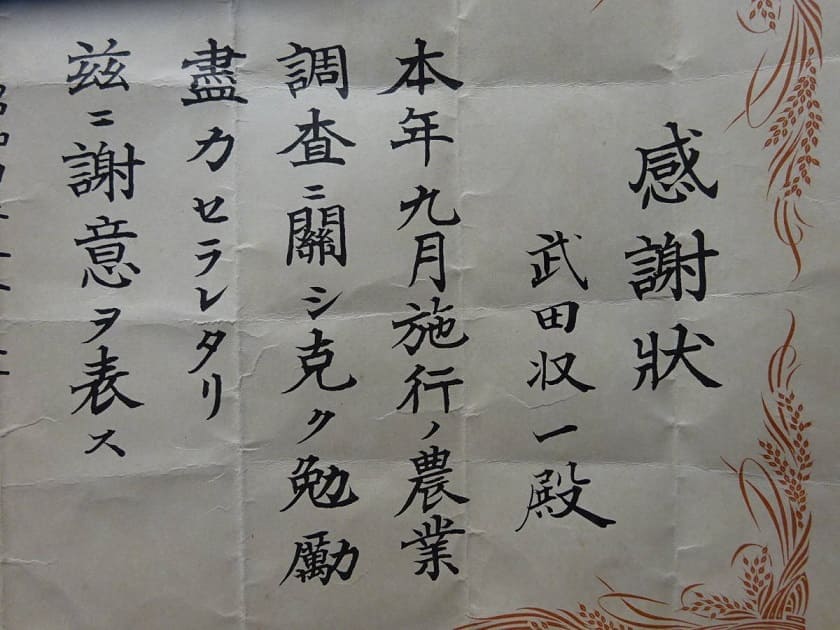 感謝狀
武田収一殿
本年九月施行ノ農業
調査ニ關シ克ク勉勵
盡力セラレタリ
茲ニ謝意ヲ表ス